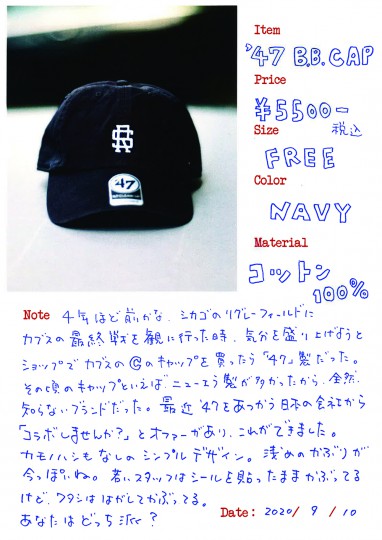 Item
'47 B.B. CAP
Price
¥5500-
税込
Size
FREE
Color
NAVY
Material
コットン
100%
'47
Note 4年ほど前かな、シカゴのリグレーフィールドに
カブスの最終戦を観に行った時、気分を盛り上げようと
ショップでカブスの©のキャップを買ったら「47」製だった。
その頃のキャップといえば、ニューエラ製が多かったから、全然
知らないブランドだった。最近'47をあつかう日本の会社から
「コラボしませんか?」とオファーがあり、これができました。
カモノハシもなしのシンプルデザイン。浅めのかぶりが
今っぽいね。若いスタッフはシールを貼ったままかぶってる
けど、ワタシははがしてかぶってる。
あなたはどっち派?
Date: 2020/ 9 / 10